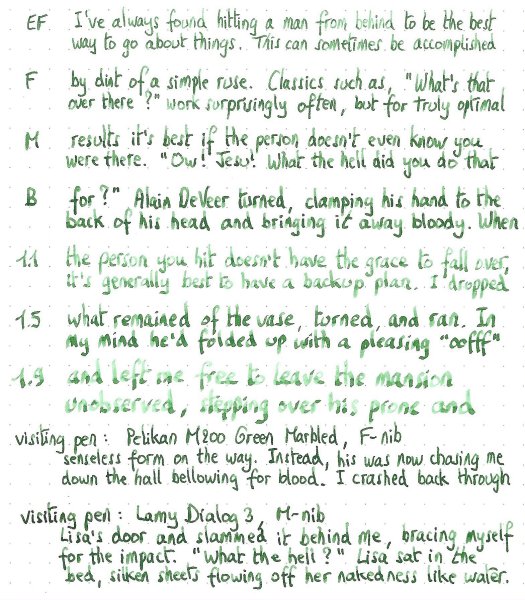 EF I've always found hitting a man from behind to be the best
way to go about things. This can sometimes be accomplished
F by dint of a simple ruse. Classics such as, "What's that
over there?" work surprisingly often, but for truly optimal
M results it's best if the person doesn't even know you
were there. "Ow! Jesu! What the hell did you do that
B for?" Alain DeVeer turned, clamping his hand to the
back of his head and bringing it away bloody. When
1.1 the person you hit doesn't have the grace to fall over,
it's generally best to have a backup plan. I dropped
1.5 what remained of the vase, turned, and ran. In
my mind he'd folded up with a pleasing "oofff"
1.9 and left me free to leave the mansion
unobserved, stepping over his prone and
visiting pen: Pelikan M200 Green Marbled, F-nib
senseless form on the way. Instead, his was now chasing me
down the hall bellowing for blood. I crashed back through
visiting pen: Lamy Dialog 3, M-nib
Lisa's door and slammed it behind me, bracing myself
for the impact. "What the hell?" Lisa sat in the
bed, silken sheets flowing off her nakedness like water.